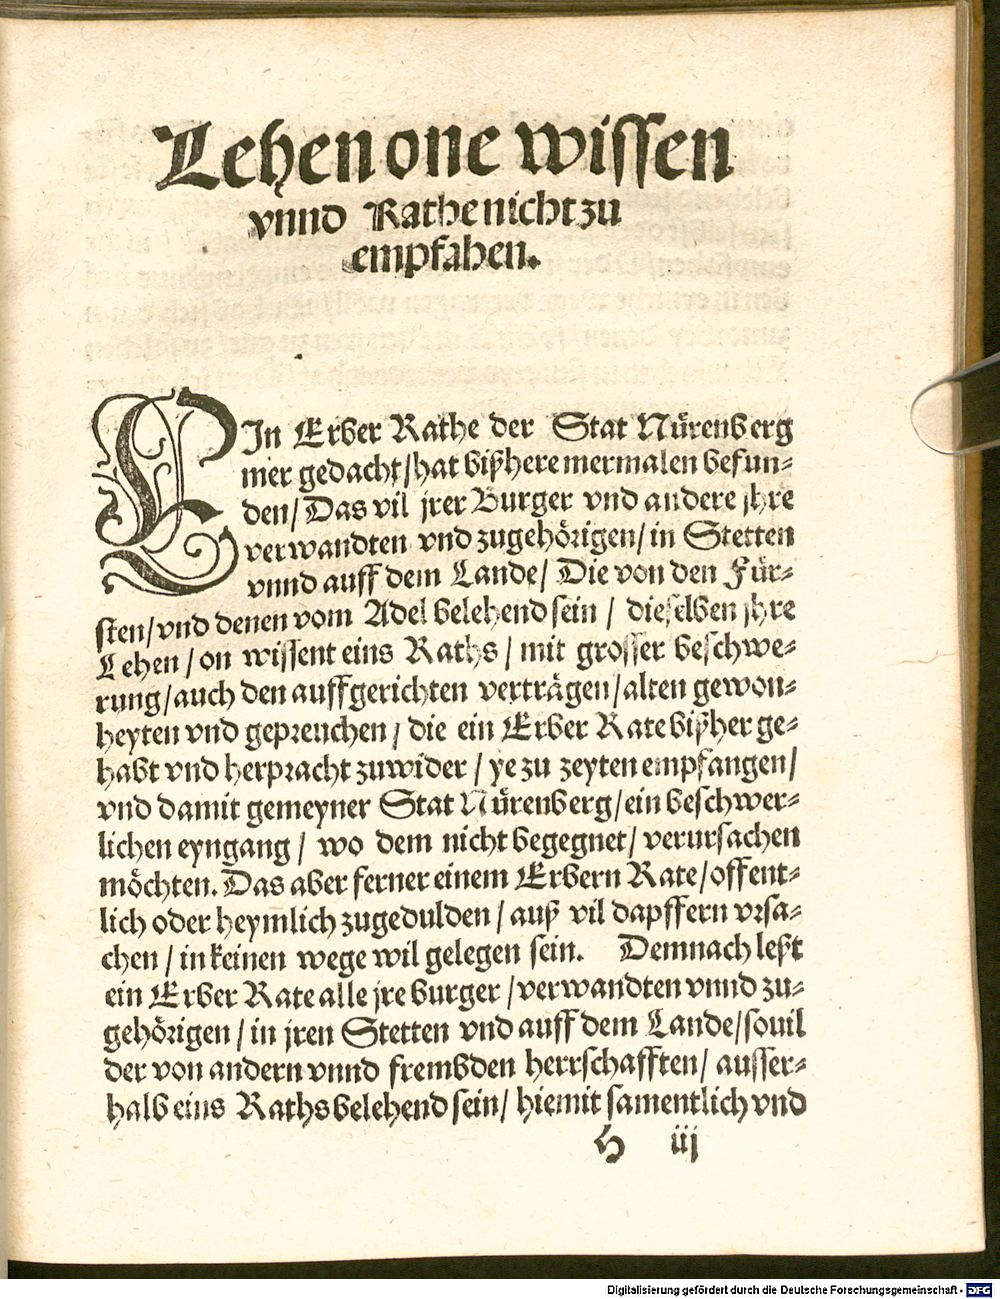 Lehen one wissen
vnnd Rathe nicht zu
empfahen.
EIn Erber Rathe der Stat Nürenberg
mer gedacht/hat bißhere mermalen befun-
den/Das vil jrer Burger vnd andere jhre
verwandten vnd zugehörigen/in Stetten
vnnd auff dem Lande/Die von den Für-
sten/vnd denen vom Adel belehend sein / dieselben jhre
Lehen/on wissent eins Raths/mit grosser beschwe-
rung/auch den auffgerichten verträgen/alten gewon-
heyten vnd gepreuchen/die ein Erber Rate bißher ge-
habt vnd herpracht zuwider/ye zu zeyten empfangen/
vnd damit gemeyner Stat Nürenberg/ein beschwer-
lichen eyngang/wo dem nicht begegnet/verursachen
möchten. Das aber ferner einem Erbern Rate/offent-
lich oder heymlich zugedulden/auß vil dapffern vrsa-
chen/in keinen wege wil gelegen sein. Demnach leßt
ein Erber Rate alle jre burger/verwandten vnnd zu-
gehörigen/in jren Stetten vnd auff dem Lande/souil
der von andern vnnd frembden herrschafften/ausser-
halb eins Raths belehend sein/hiemit samentlich vnd
H iij
Digitalisierung gefördert durch die Deutsche Forschungsgemeinschaft - DFG